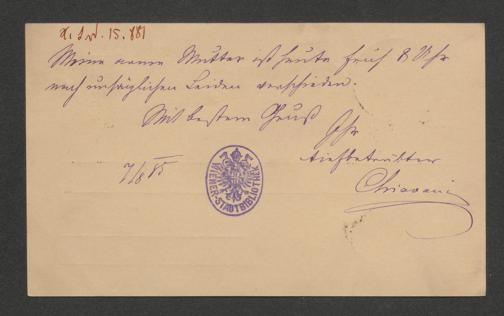 I. N. 15.881
Meine arme Mutter ist heute früh 8 Uhr
nach unsäglichen Leiden verschieden.
Mit bestem Gruß
Ihr
tiefbetrübter
Chiavacci
7/8 85
WIENER-STADTBIBLIOTHEK